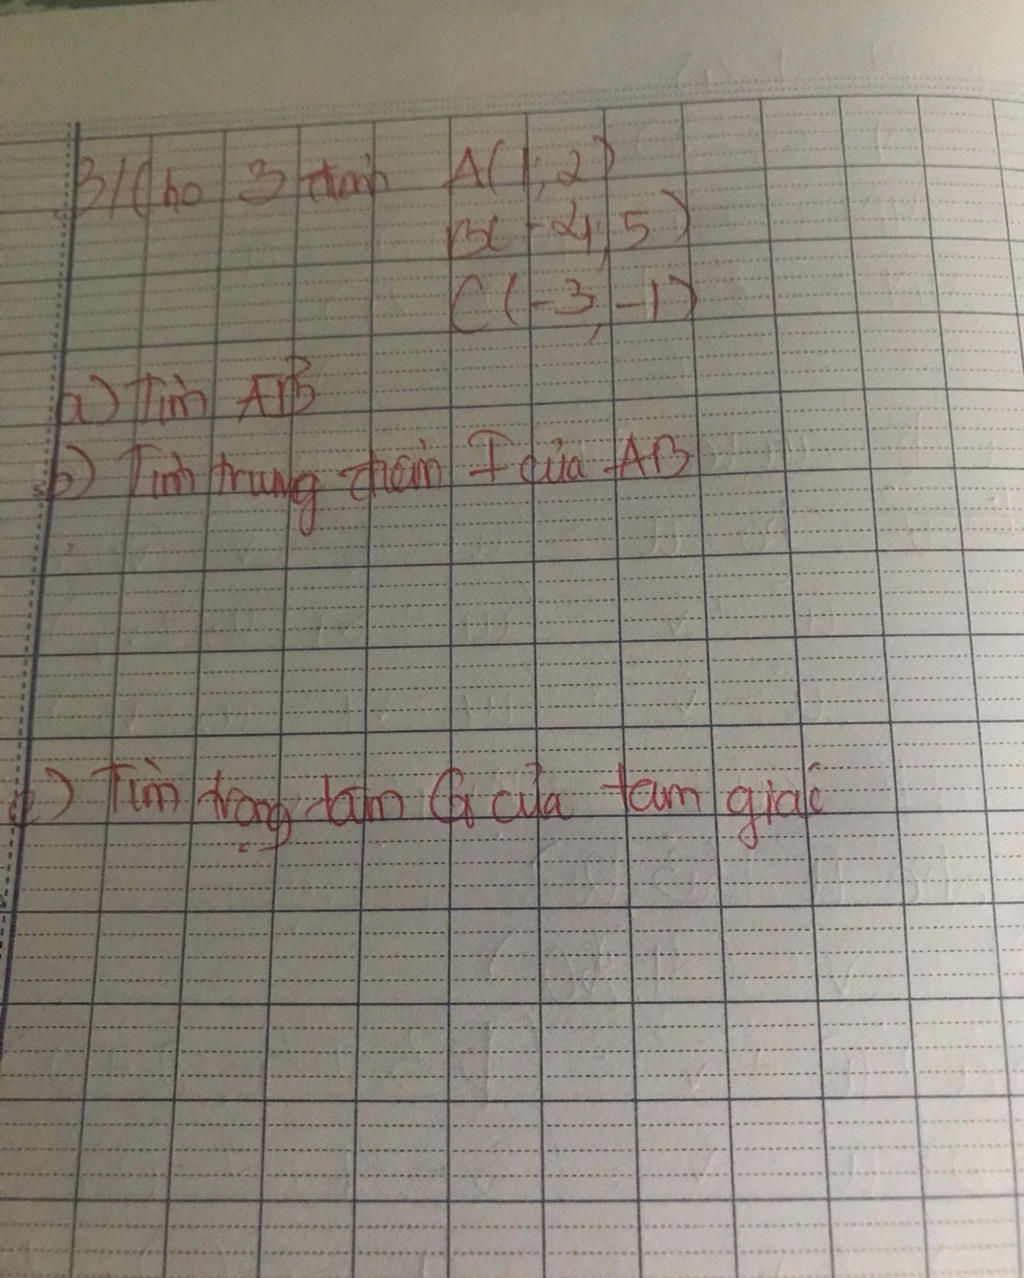 3/ Cho 3 đỉnh A(1,2)
B(-4,5)
C(-3,-1)
a) Tìm AB
b) Tính trung điểm I của AB
c) Tìm trọng tâm G của tam giác